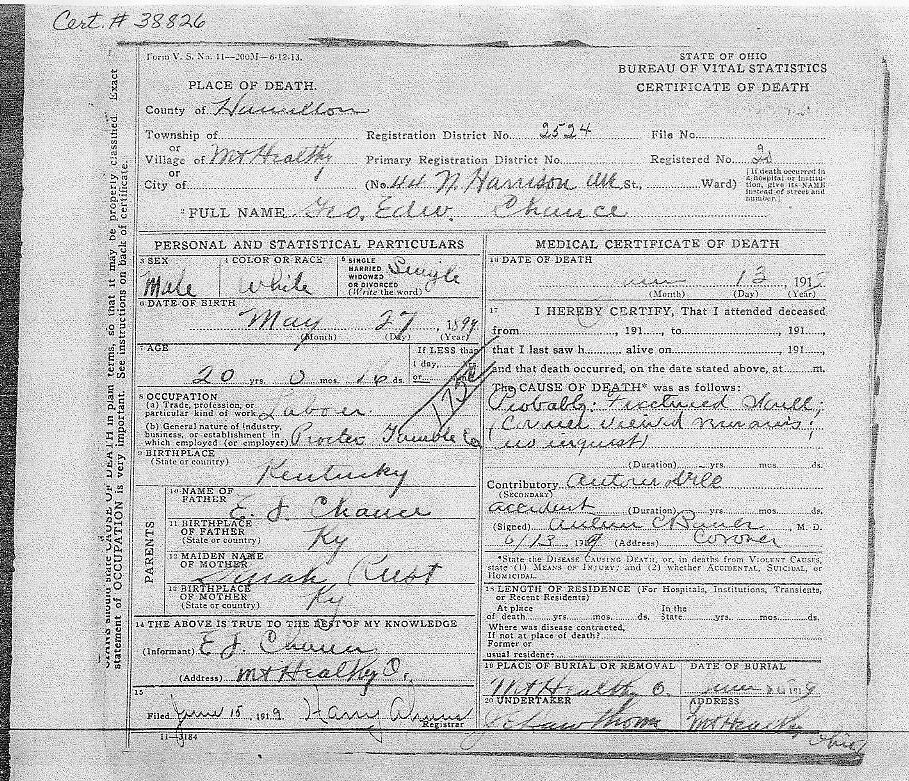 Cert. # 38826
Form V. S. No. 11—200M—6-12-13.
STATE OF OHIO
BUREAU OF VITAL STATISTICS
CERTIFICATE OF DEATH
PLACE OF DEATH.
County of Hamilton
Township of
Registration District No. 2524
File No.
or
Village of Mt Healthy
Primary Registration District No.
Registered No.
or
City of
(No. 44 N. Harrison Ave St., Ward)
[If death occurred in a hospital or institution, give its NAME instead of street and number.]
2 FULL NAME Geo. Edw. Chance
PERSONAL AND STATISTICAL PARTICULARS
3 SEX
Male
4 COLOR OR RACE
White
5 SINGLE
MARRIED
WIDOWED
OR DIVORCED
(Write the word)
Single
6 DATE OF BIRTH
May 27, 1899
(Month) (Day) (Year)
7 AGE
20 yrs. 0 mos. 16 ds.
If LESS than
1 day,
or
8 OCCUPATION
(a) Trade, profession, or
particular kind of work Laborer
(b) General nature of industry,
business, or establishment in
which employed (or employer) Procter Gamble Co
9 BIRTHPLACE
(State or country)
Kentucky
PARENTS
10 NAME OF
FATHER
E. J. Chance
11 BIRTHPLACE
OF FATHER
(State or country)
Ky
12 MAIDEN NAME
OF MOTHER
Dinah Rust
13 BIRTHPLACE
OF MOTHER
(State or country)
Ky
14 THE ABOVE IS TRUE TO THE BEST OF MY KNOWLEDGE
(Informant) E J. Chance
(Address) Mt Healthy O.
15
Filed June 15, 1919 Harry
Registrar
11—3184
MEDICAL CERTIFICATE OF DEATH
16 DATE OF DEATH
June 13, 191
(Month) (Day) (Year)
17 I HEREBY CERTIFY, That I attended deceased
from , 191 , to , 191 ,
that I last saw h alive on , 191 ,
and that death occurred, on the date stated above, at m.
The CAUSE OF DEATH* was as follows:
Probably: Fractured Skull,
(Coroner viewed remains;
no inquest)
(Duration) yrs. mos. ds.
Contributory Automobile
(SECONDARY)
accident (Duration) yrs. mos. ds.
(Signed) C Bauer M. D.
6/13 1919 (Address) Coroner
*State the DISEASE CAUSING DEATH, or, in deaths from VIOLENT CAUSES,
state (1) MEANS OF INJURY; and (2) whether ACCIDENTAL, SUICIDAL, or
HOMICIDAL.
18 LENGTH OF RESIDENCE (For Hospitals, Institutions, Transients,
or Recent Residents)
At place In the
of death yrs. mos. ds. State yrs. mos. ds.
Where was disease contracted,
If not at place of death?
Former or
usual residence
19 PLACE OF BURIAL OR REMOVAL
Mt Healthy O.
DATE OF BURIAL
June 16 1919
20 UNDERTAKER
ADDRESS
Mt Healthy
Ohio
should state CAUSE OF DEATH in plain terms, so that it may be properly classified. Exact
statement of OCCUPATION is very important. See instructions on back of certificate.